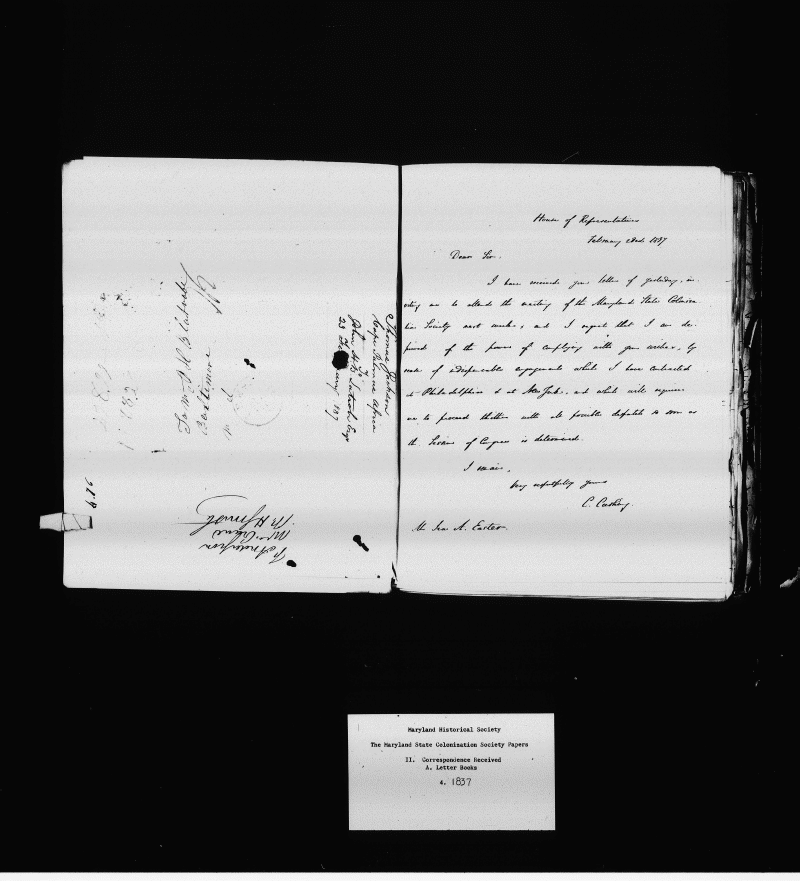 Thomas Jackson
Cape Palmas Africa
to
John H B Latrobe Esqr
23 February 1837
To Mr J H B Latrobe
Baltimore
M d
House of Representatives
February 2nd. 1837
Dear Sir.
I have received your letter of yesterday, in-
viting me to attend the meeting of the Maryland State Coloniza-
tion Society next week, and I regret that I am de-
prived of the power of complying with your wishes, by
reason of indispensable engagements which I have contracted
at Philadelphia & at New York, and which will require
me to proceed thither with all possible dispatch as soon as
the Session of Congress is determined.
I remain,
Very respectfully yours
C. Cushing.
Mr. A. Easter
Maryland Historical Society
The Maryland State Colonization Society Papers
II. Correspondence Received
A. Letter Books
4. 1837